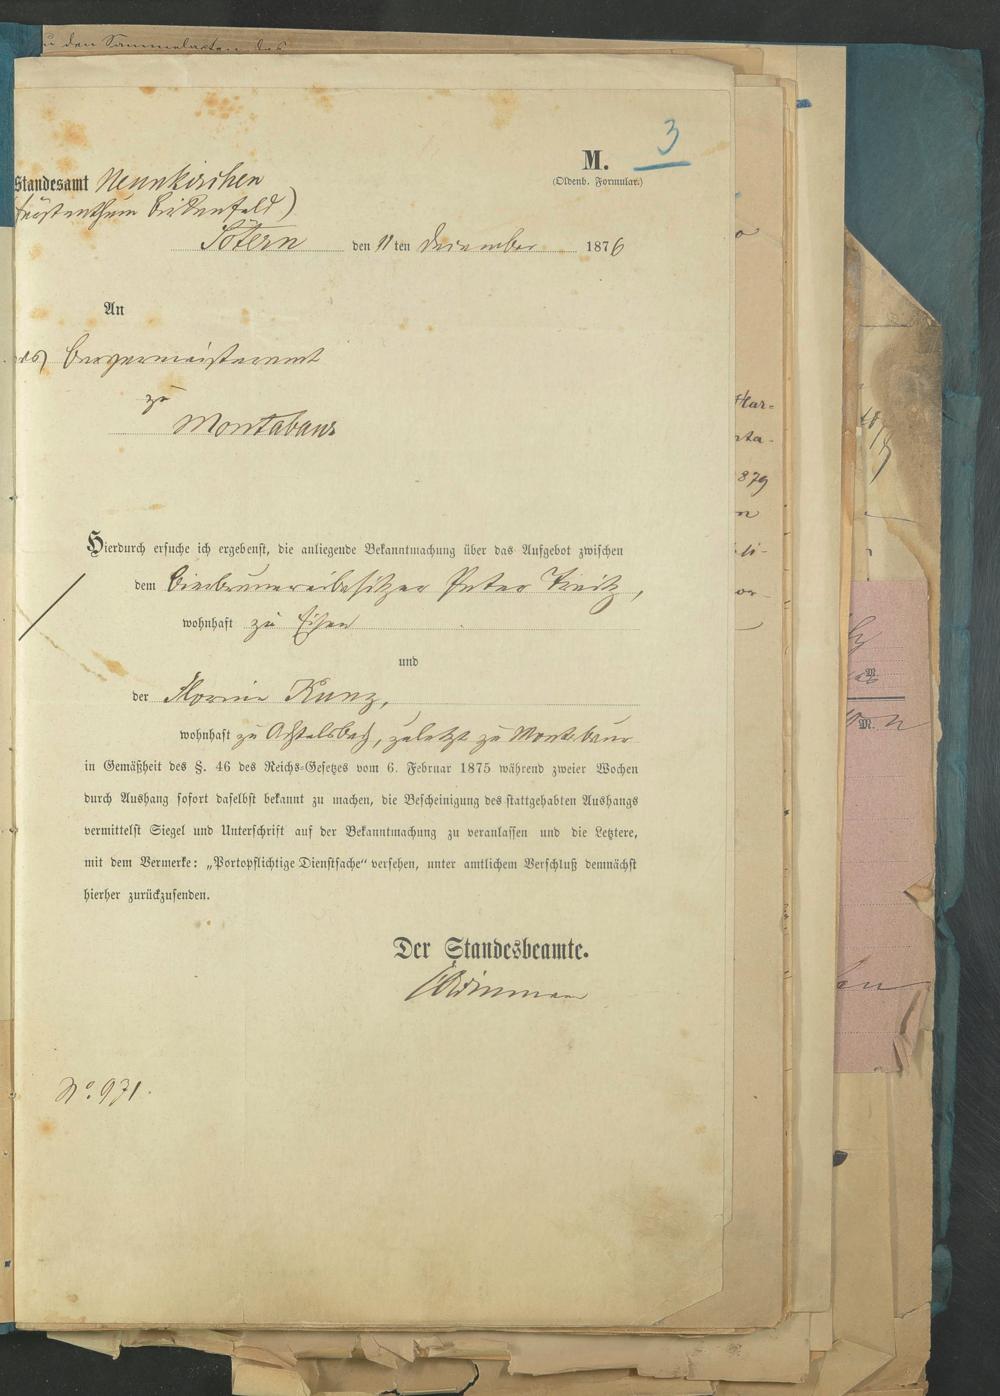 zu den Sammelakten des
3
M.
(Oldenb. Formular.)
Standesamt Neunkirchen
Fürstenthum Birkenfeld)
Sötern den 11ten December 1876
An
das Bürgermeisteramt
zu
Montabaur
Hierdurch ersuche ich ergebenst, die anliegende Bekanntmachung über das Aufgebot zwischen
dem Bierbrauereibesitzer Peter Treitz,
wohnhaft zu Eisen
und
der Florine Kunz,
wohnhaft zu Achtelsbach, zuletzt zu Montabaur
in Gemäßheit des §. 46 des Reichs-Gesetzes vom 6. Februar 1875 während zweier Wochen
durch Aushang sofort daselbst bekannt zu machen, die Bescheinigung des stattgehabten Aushangs
vermittelst Siegel und Unterschrift auf der Bekanntmachung zu veranlassen und die Letztere,
mit dem Vermerke: „Portopflichtige Dienstsache“ versehen, unter amtlichem Verschluß demnächst
hierher zurückzusenden.
Der Standesbeamte.
No. 971.